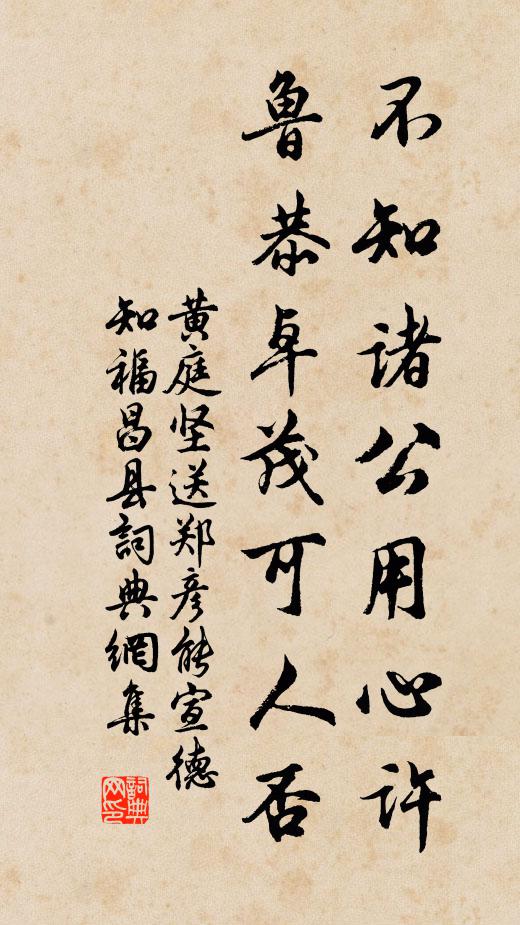 不知諸公用心許
魯恭卓茂可人否
黄庭坚送郑彦能宣德
知福昌县詞典網集
詞典网印